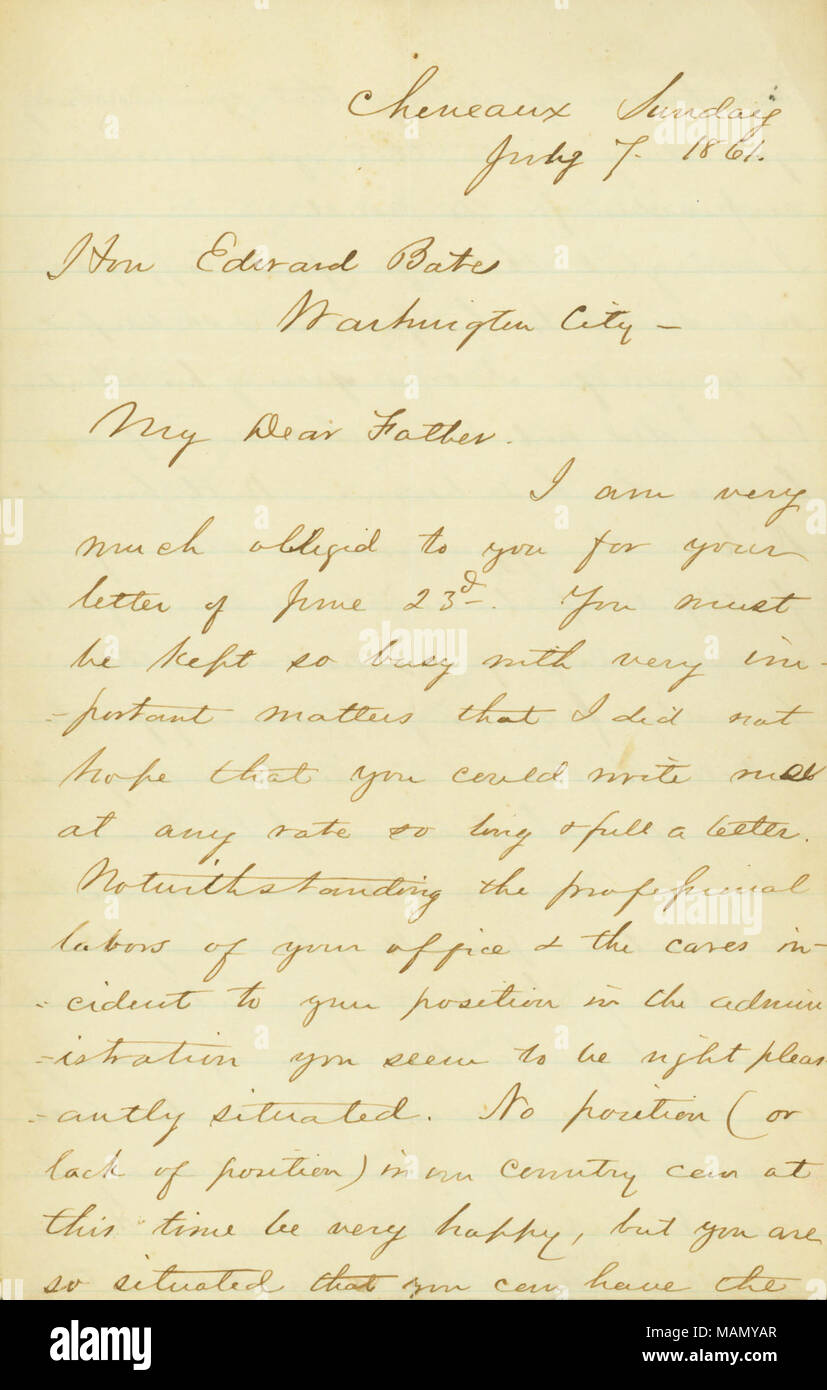 Cheneaux Sunday
July 7. 1861.
Hon Edward Bates
Washington City –
My Dear Father.
I am very
much obligid to you for your
letter of June 23d. You must
be kept so busy with very im-
-portant matters that I did not
hope that you could write me
at any rate so long & full a letter.
Notwithstanding the professional
labors of your office & the cares in-
-cident to your position in the admin
-istration you seem to be right pleas
-antly situated. No position (or
lack of position) in our country can at
this time be very happy, but you are
so situated that you can have the
alamy
Image ID: MAMYAR
www.alamy.com